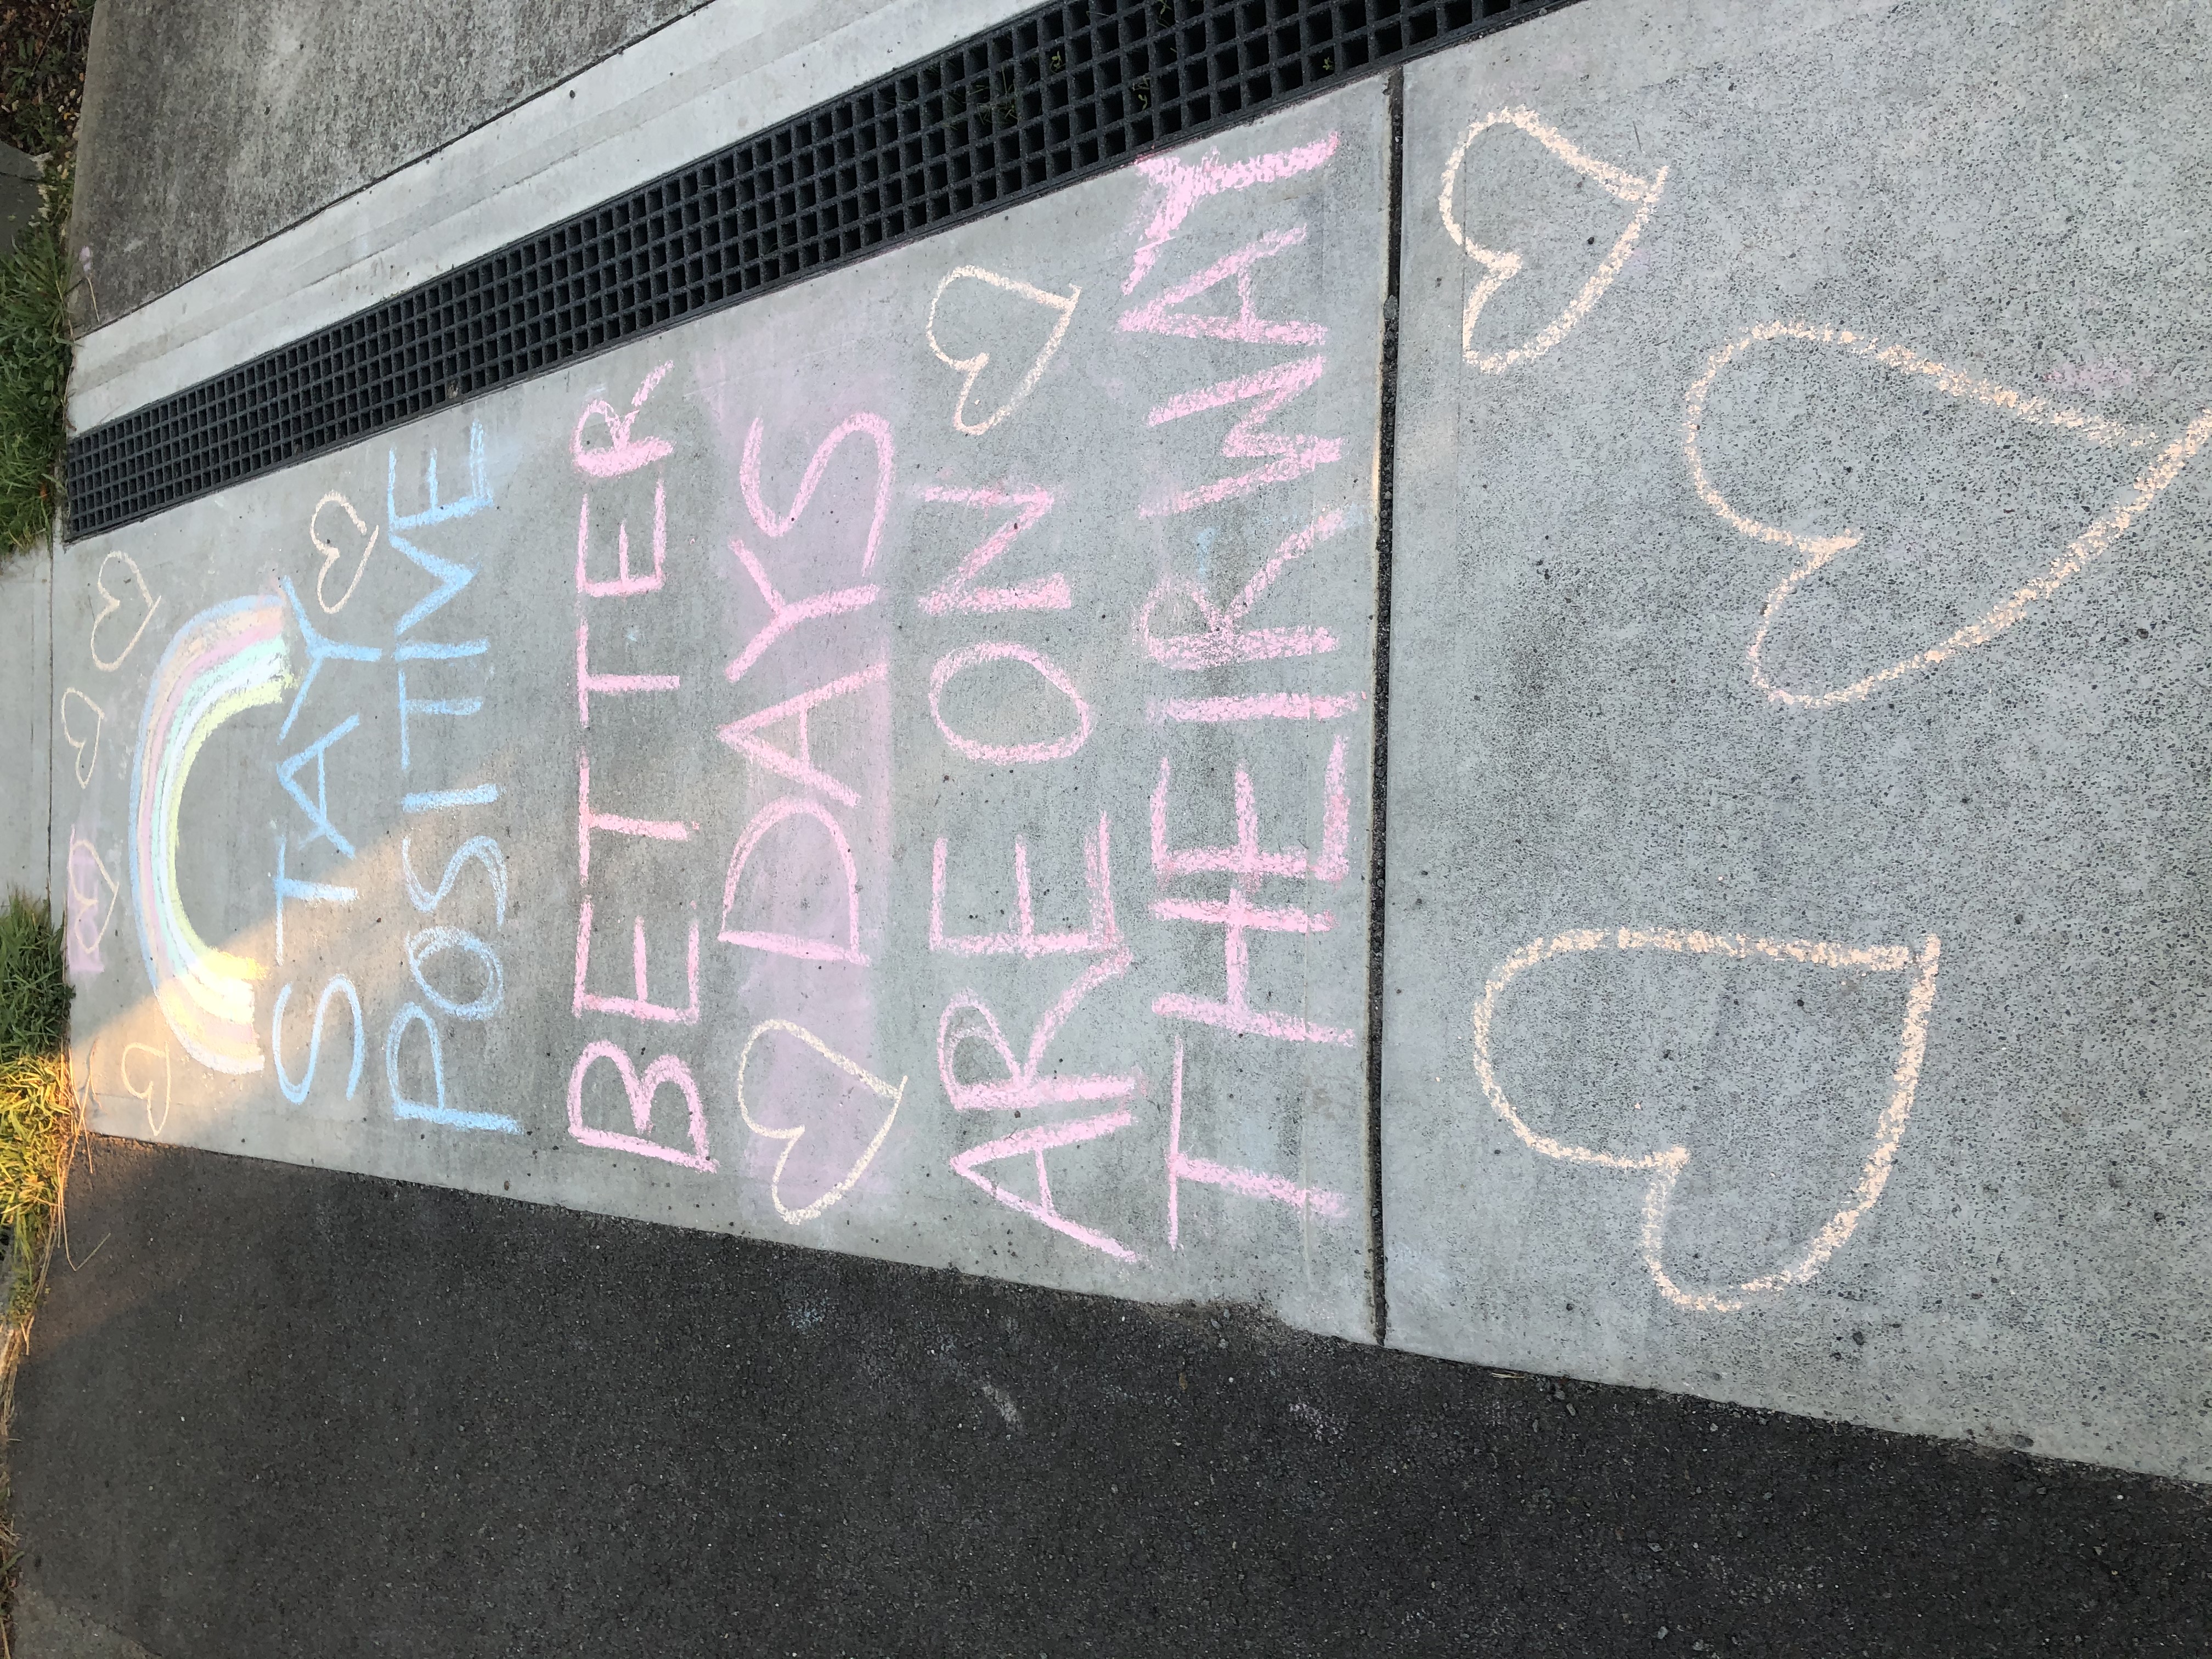 STAY
POSITIVE
BETTER
DAYS
ARE ON
THEIR WAY